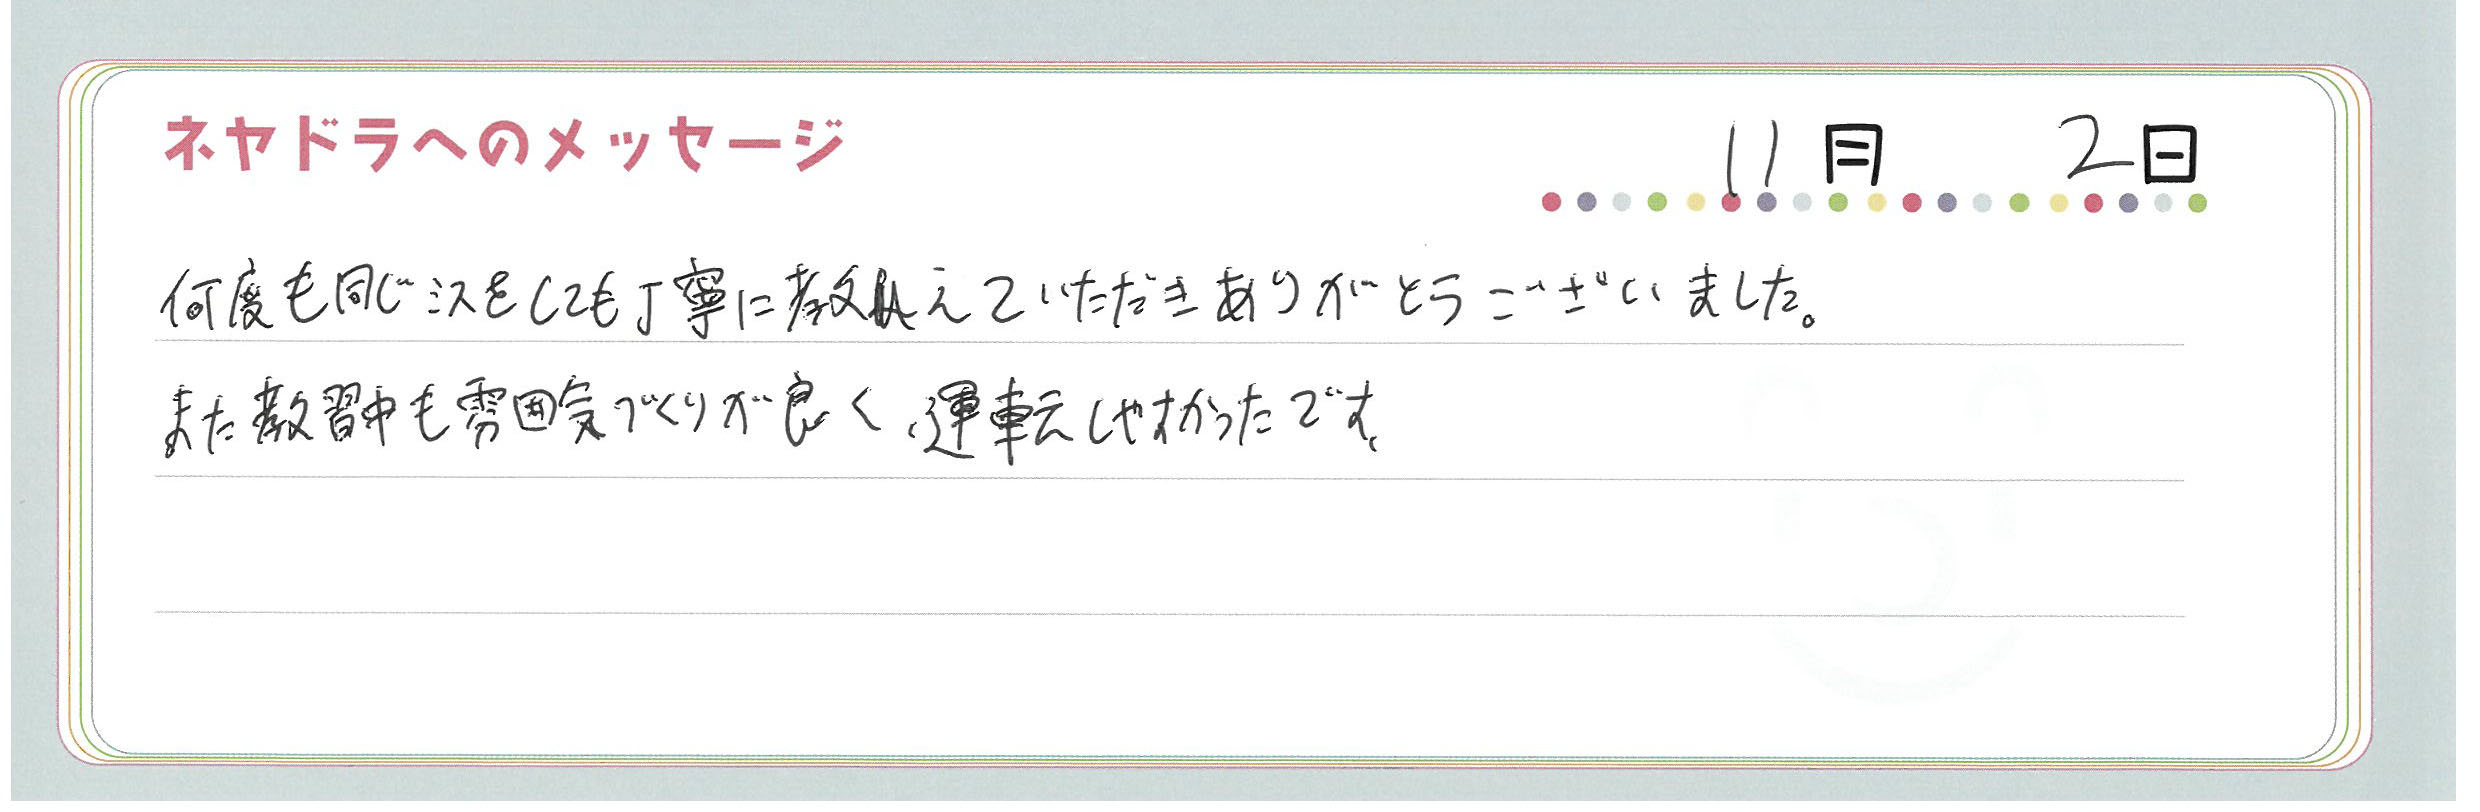 ネヤドラへのメッセージ
11月 2日
何度も同じミスをしても丁寧に教えていただきありがとうございました。
また教習中も雰囲気づくりが良く、運転しやすかったです。